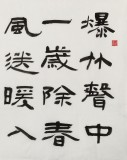 爆竹聲中
一歲除春
風送暖入